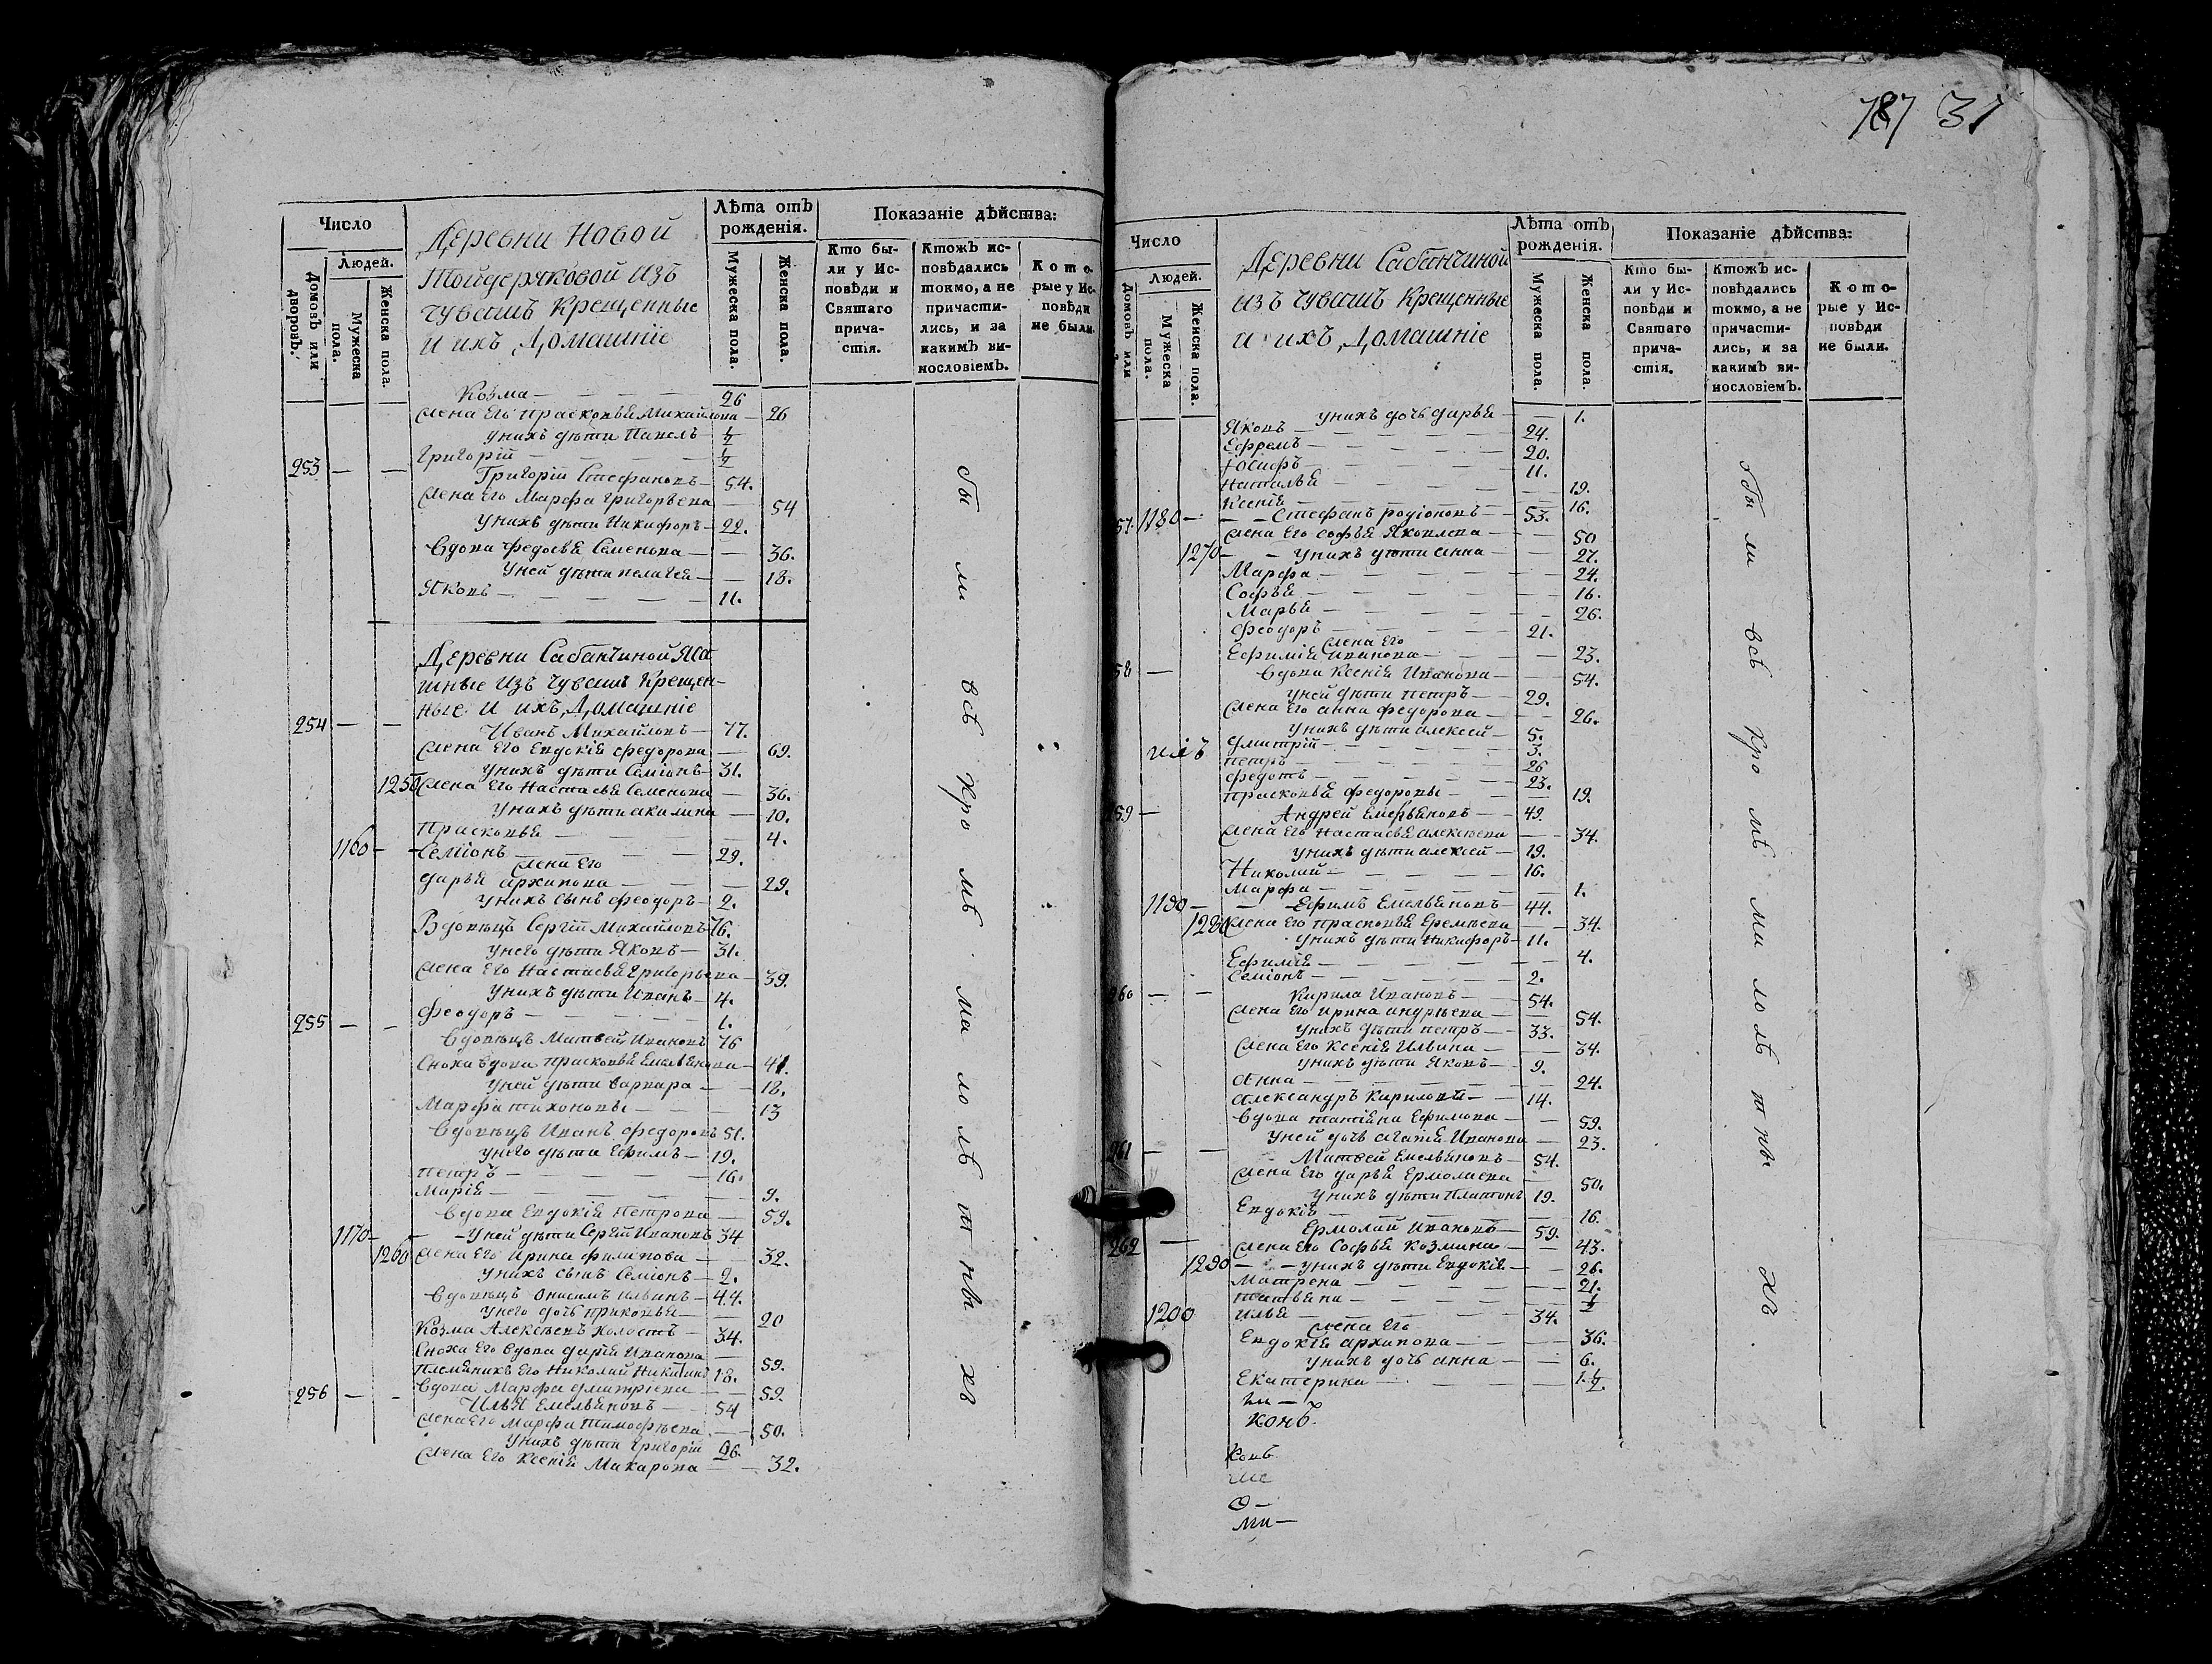 Число
Людей.
Домовъ или дворовъ.
Мужеска пола.
Женска пола.
Деревни Новой
Тойдеряковой изъ
чувашъ Крещенные
и ихъ Домашніе
Лѣта отъ рожденія.
Мужеска пола.
Женска пола.
Показаніе дѣйства:
Кто были у Исповѣди и Святаго причастія.
Ктожъ исповѣдались токмо, а не причастились, и за какимъ винословіемъ.
Которые у Исповѣди не были.
Козма — 26
жена Его Прасковья Михайлова — 26
у нихъ дѣти Павелъ — 1/2
Григорій — 1/2
253 — — Григорій Стефановъ — 54.
жена Его Марфа Григорьева 54
у нихъ дѣти Никифоръ — 22.
вдова Федосья Семенова — 36.
у ней дѣти Пелагея — 18.
Яковъ — 11.
Деревни Сабанчиной Яса
шные изъ чувашъ Крещен-
ные и ихъ Домашніе
254 — — Иванъ Михайловъ — 77.
жена Его Евдокія Федорова — 69.
у нихъ дѣти Семіонъ — 31.
1250 жена Его Настасья Семенова — 36.
у нихъ дѣти Акилина — 10.
Прасковья — 4.
1160 — Семіонъ — 29.
жена Его
Дарья Архипова — 29.
у нихъ сынъ Феодоръ — 2.
Вдовецъ Сергій Михайловъ 76.
у него дѣти Яковъ — 31.
жена Его Настасья Григорьева — 39.
у нихъ дѣти Иванъ — 4.
Феодоръ — 1.
255 — — вдовецъ Матвей Ивановъ 76
Сноха вдова Прасковья Емельянова — 41.
у ней дѣти Варвара — 18.
Марфа Тихоновы — 13
вдовецъ Иванъ Федоровъ 51.
у него дѣти Ефимъ — 19.
Петръ — 16.
Марія — 9.
вдова Евдокія Петрова — 59.
1170 — у ней дѣти Сергій Ивановъ 34
1260 жена Его Ирина Филипова — 32.
у нихъ сынъ Семіонъ — 2.
вдовецъ Онисимъ Ильинъ — 44.
у него дочь Прасковья — 20
Козма Алексѣевъ холостъ — 34.
Сноха Его вдова Дарія Иванова — 59.
племяникъ Его Николай Никитинъ 18.
вдова Марфа Дмитріева — 59.
256 — — Илья Емельяновъ — 54
жена Его Марфа Тимофѣева — 50.
у нихъ дѣти Григорій 26.
жена Его Ксенія Макарова — 32.
бы ли всѣ кро мѣ ма ло лѣ т ны хъ
787 31
Число
Людей.
Домовъ или
Мужеска пола.
Женска пола.
Деревни Сабанчиной
изъ чувашъ Крещенные
и ихъ Домашніе
Лѣта отъ рожденія.
Мужеска пола.
Женска пола.
Показаніе дѣйства:
Кто были у Исповѣди и Святаго причастія.
Ктожъ исповѣдались токмо, а не причастились, и за какимъ винословіемъ.
Которые у Исповѣди не были.
у нихъ дочь Дарья — 1.
Яковъ — 24.
Ефремъ — 20.
Іосифъ — 11.
Наталья — 19.
Ксенія — 16.
57. 1180 — Стефанъ Родіоновъ — 53.
жена Его Софья Яковлева — 50
1270 — у нихъ дѣти Анна — 27.
Марфа — 24.
Софья — 16.
Марья — 26.
Феодоръ — 21.
жена Его
Ефимія Иванова — 23.
58 — вдова Ксенія Иванова — 54.
у ней дѣти Петръ — 29.
жена Его Анна Федорова — 26.
у нихъ дѣти Алексей — 5.
Дмитрій — 3.
Петръ — 26
Федотъ — 23.
Прасковья Федоровы — 19.
59 — Андрей Емельяновъ — 49.
жена Его Настасья Алексѣева — 34.
у нихъ дѣти Алексей — 19.
Николай — 16.
Марфа — 1.
1190 — Ефимъ Емельяновъ — 44.
1280 жена Его Прасковья Еремѣева — 34.
у нихъ дѣти Никифоръ — 11.
Ефимія — 4.
Семіонъ — 2.
260 — — Кирила Ивановъ — 54.
жена Его Ирина Андрѣева — 54.
у нихъ дѣти Петръ — 33.
жена Его Ксенія Ильина — 34.
у нихъ дѣти Яковъ — 9.
Анна — 24.
Александръ Кириловы — 14.
вдова Татіяна Ефимова — 59.
у ней дочь Агафія Иванова — 23.
261 — — Матвей Емельяновъ — 54.
жена Его Дарья Ермолаева — 50.
у нихъ дѣти Платонъ 19.
Евдокія — 16.
262 — Ермолай Ивановъ — 59.
жена Его Софья Козмина — 43.
1290 — у нихъ дѣти Евдокія — 26.
Матрена — 21.
Татьяна — 1/2
1200 Илья — 34.
жена Его
Евдокія Архипова — 36.
у нихъ дочь Анна — 6.
Екатерина — 1 1/2.
бы ли всѣ кро мѣ ма ло лѣ т ны хъ